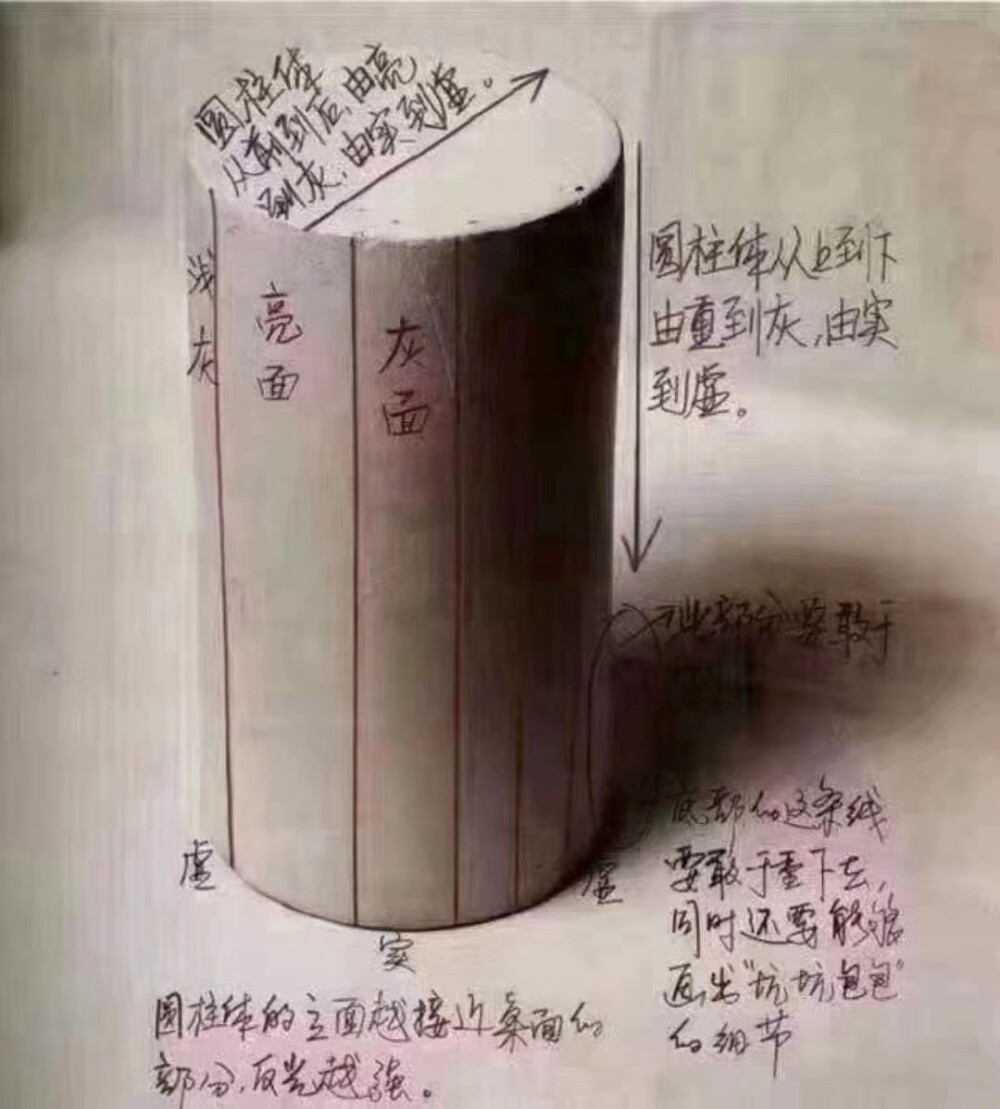 圆柱体
从前到后,由亮
到灰,由实到虚。
浅灰
亮面
灰面
圆柱体从上到下
由重到灰,由实
到虚。
部分要敢于
底部的这条线
要敢于重下去,
同时还要能够
画出"坑坑包包"
的细节
虚
虚
实
圆柱体的立面越接近桌面的
部分,反光越强。